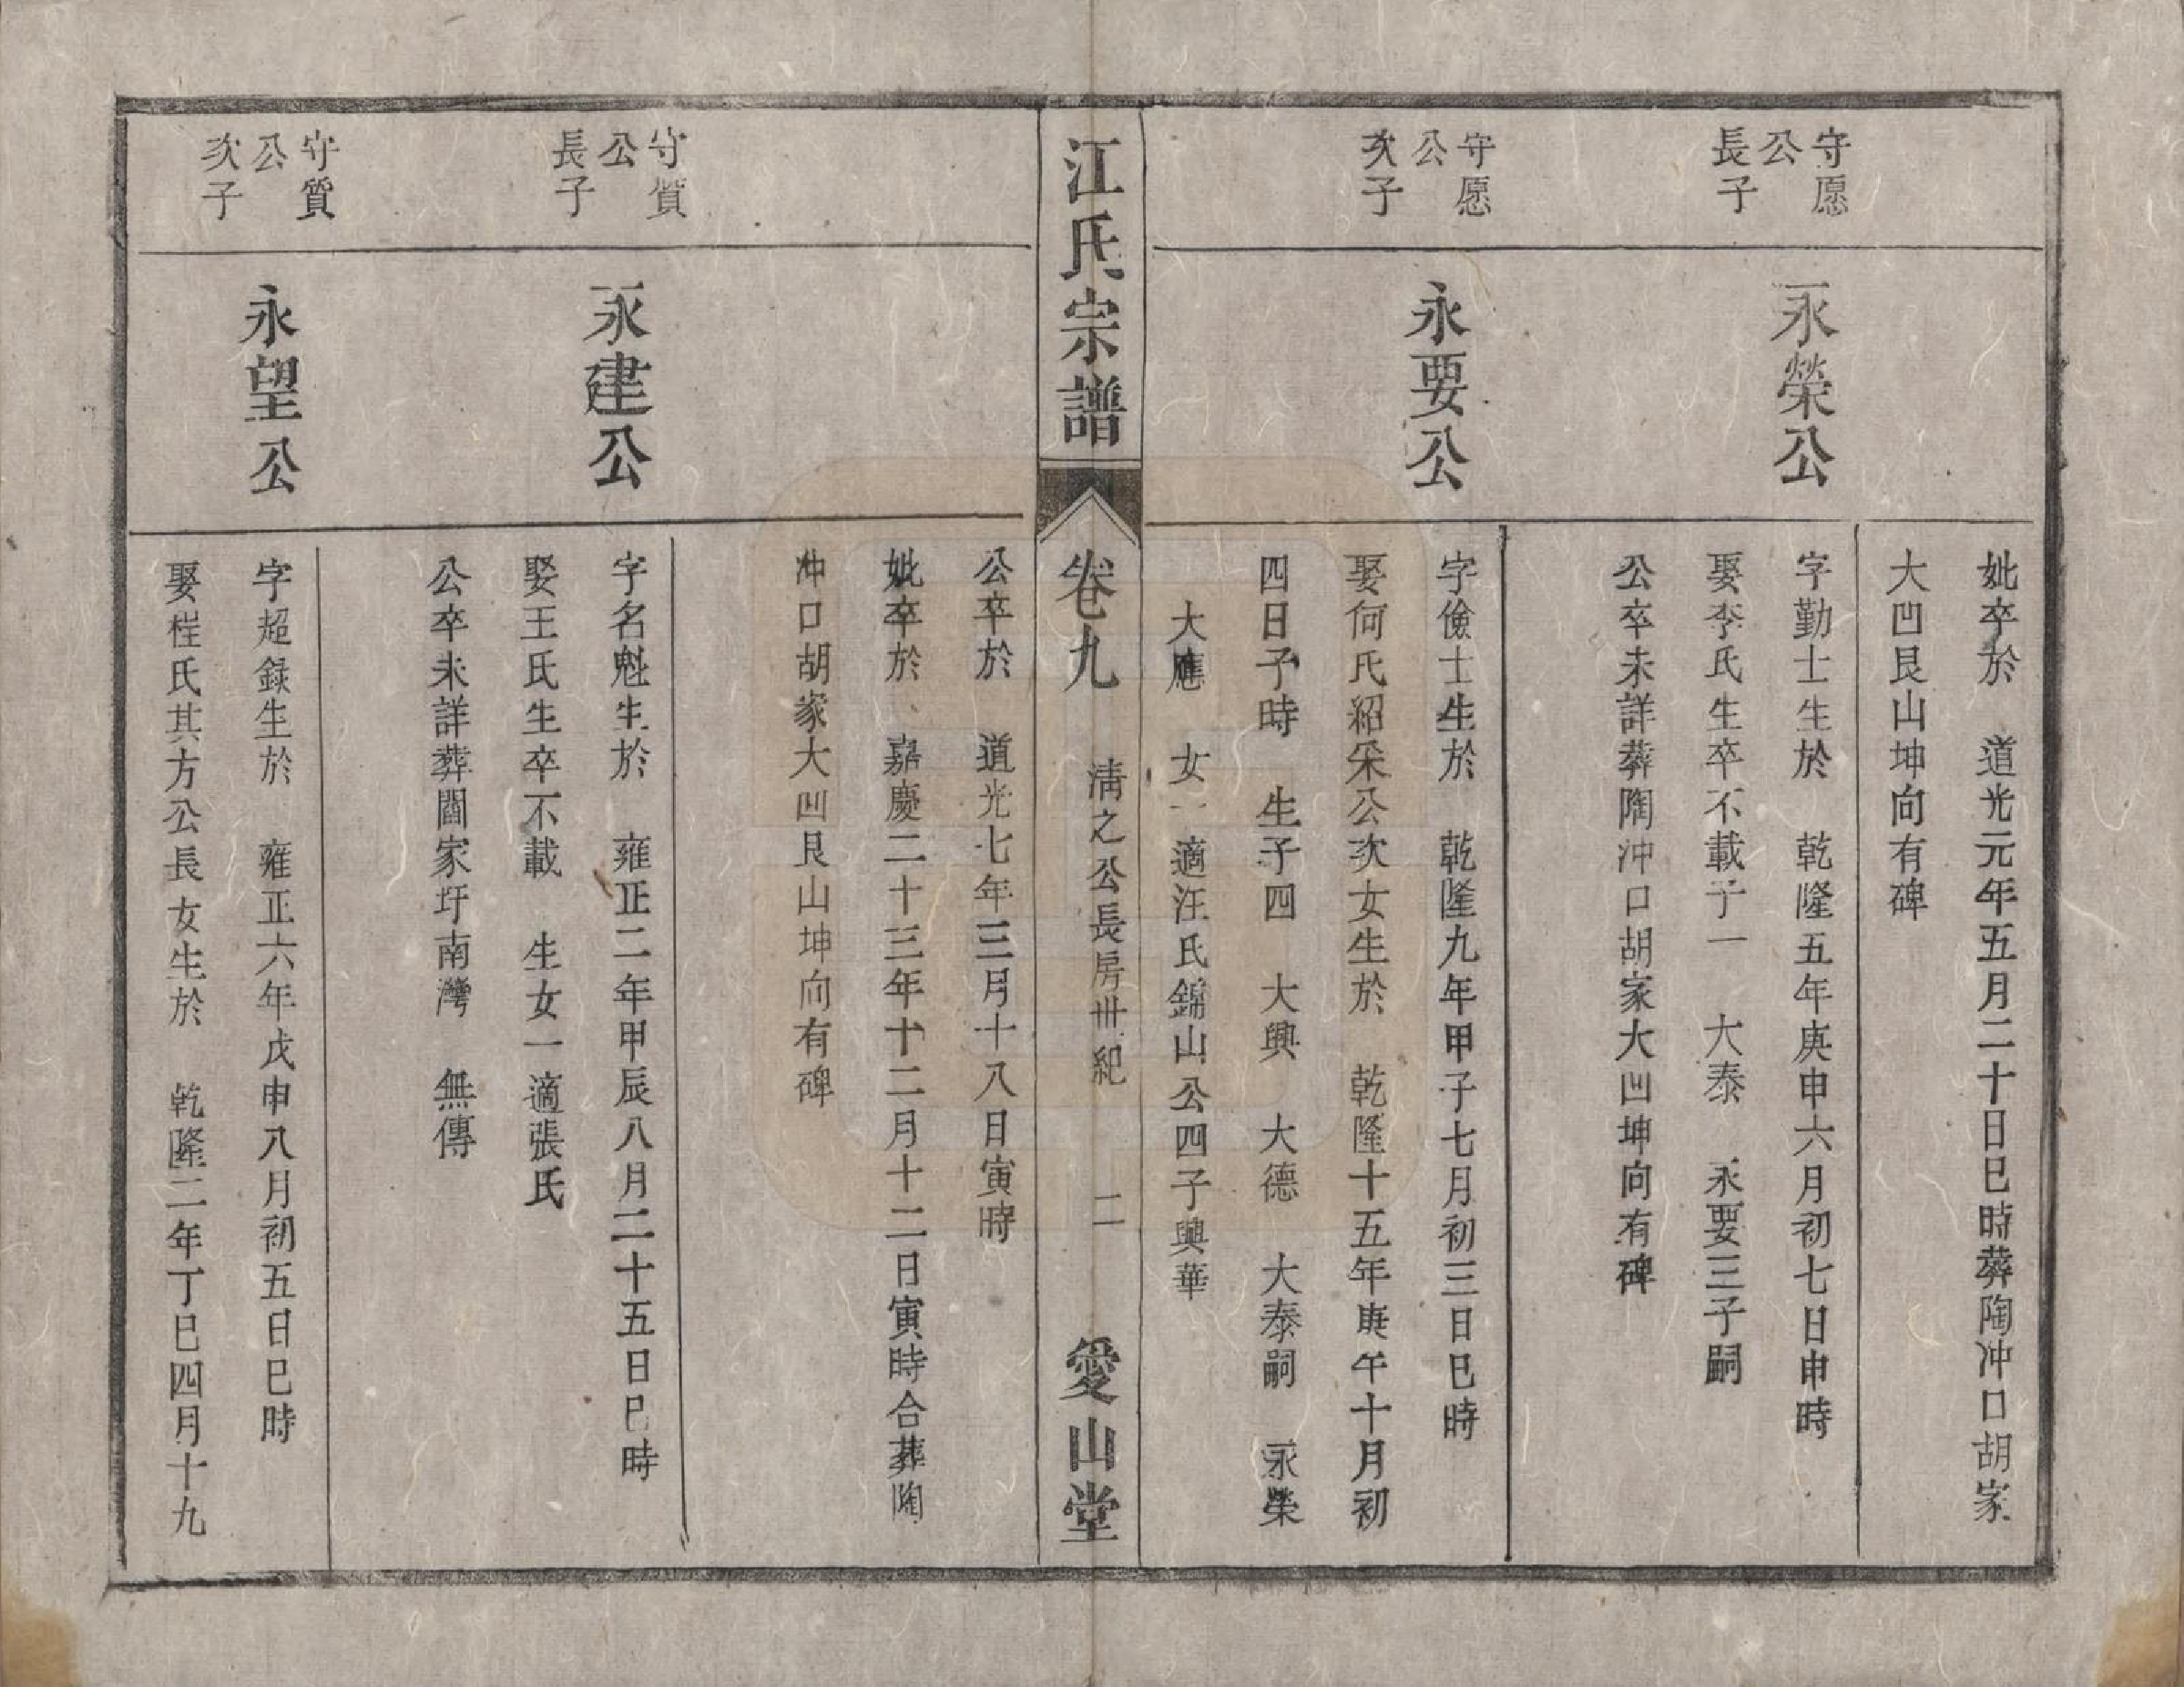 妣卒於　道光元年五月二十日巳時葬陶冲口胡家
大凹艮山坤向有碑
守愿
公
長子
永榮公
字勤士生於　乾隆五年庚申六月初七日申時
娶李氏生卒不載子一　大泰　永要三子嗣
公卒未詳葬陶冲口胡家大凹坤向有碑
守愿
公
次子
永要公
字儉士生於　乾隆九年甲子七月初三日巳時
娶何氏紹采公次女生於　乾隆十五年庚午十月初
四日子時　生子四　大興　大德　大泰嗣　永榮
大應　女一適汪氏錦山公四子興華
江氏宗譜
卷九　淸之公長房卅紀　二　愛山堂
公卒於　道光七年三月十八日寅時
妣卒於　嘉慶二十三年十二月十二日寅時合葬陶
冲口胡家大凹艮山坤向有碑
守質
公
長子
永建公
字名魁生於　雍正二年甲辰八月二十五日巳時
娶王氏生卒不載　生女一適張氏
公卒未詳葬閻家圩南灣　無傳
守質
公
次子
永望公
字超錄生於　雍正六年戊申八月初五日巳時
娶程氏其方公長女生於　乾隆二年丁巳四月十九